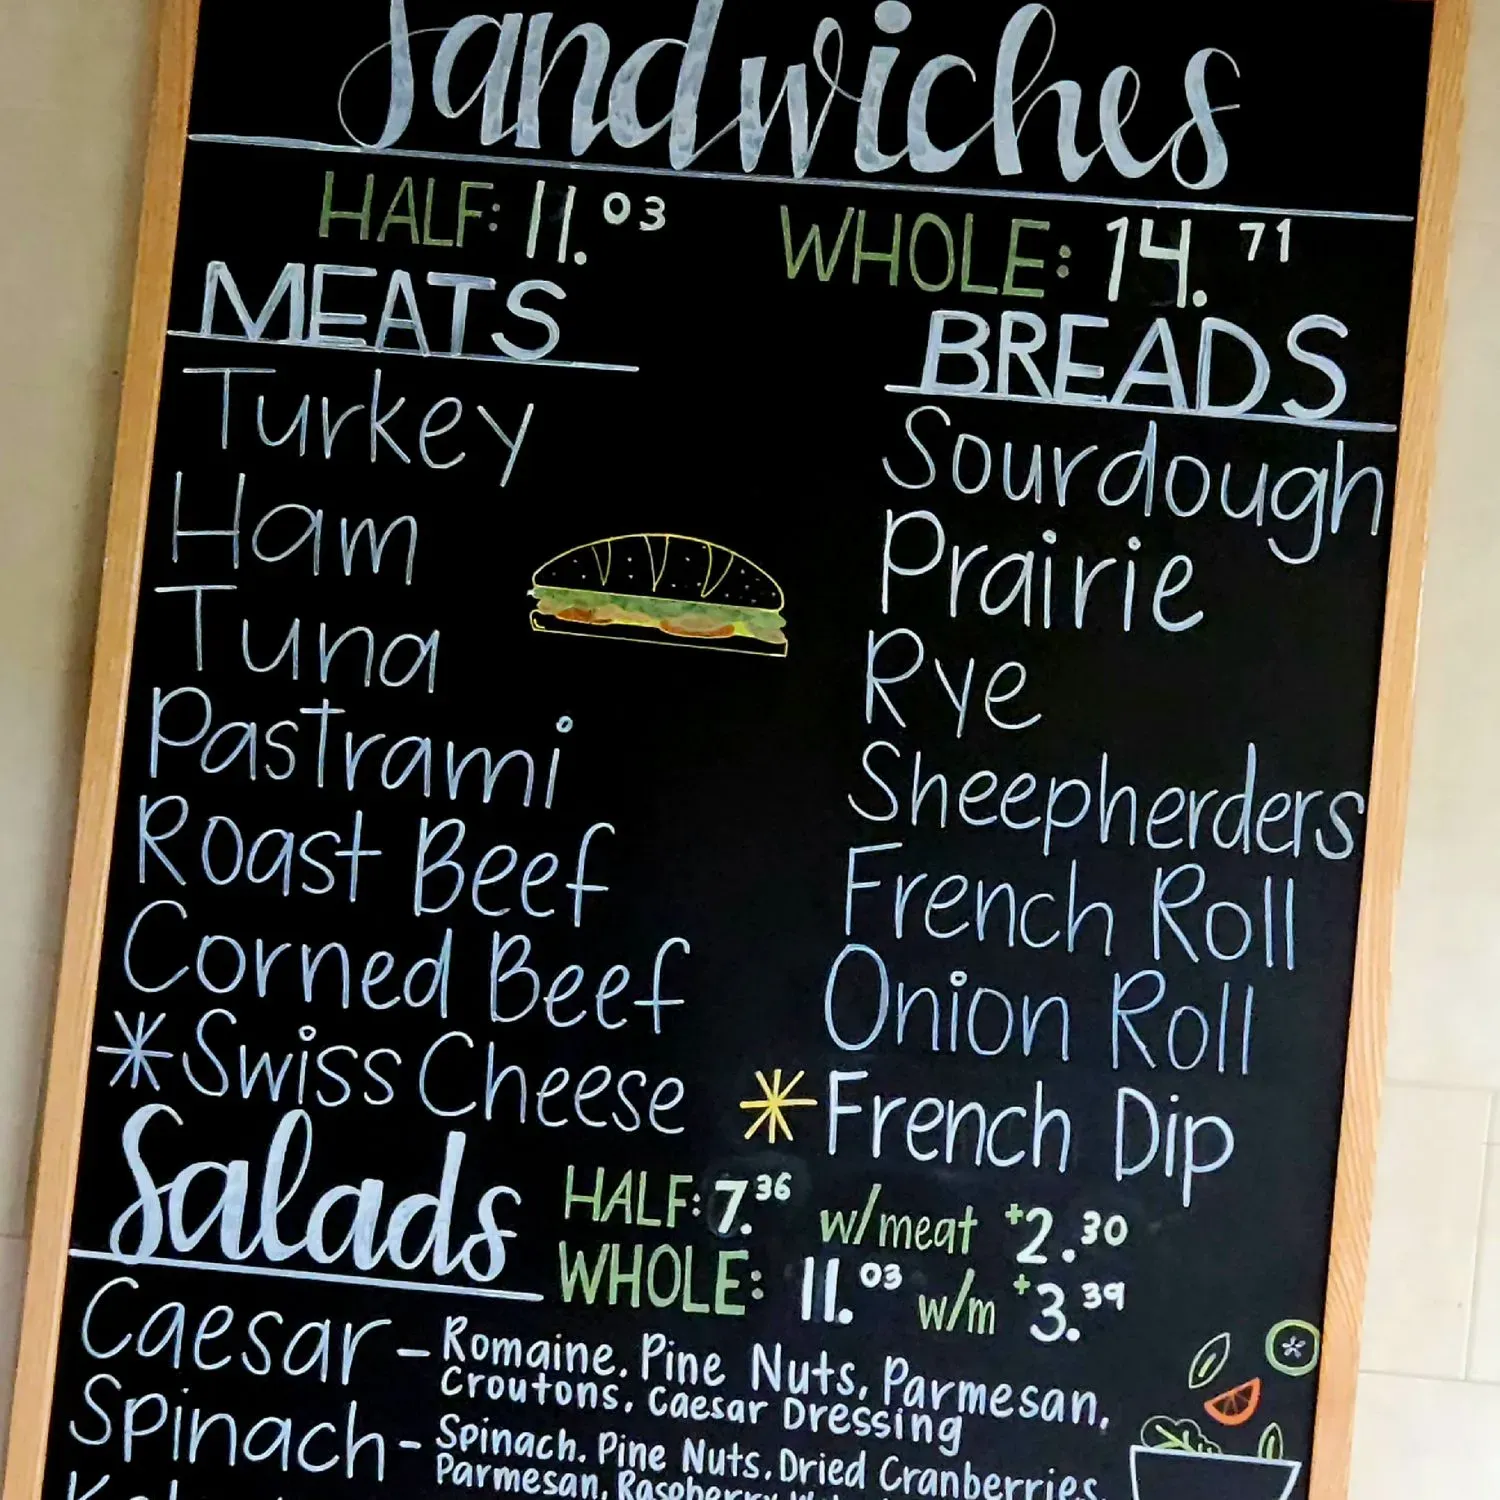 Sandwiches
HALF: 11.03 WHOLE: 14.71
MEATS
Turkey
Ham
Tuna
Pastrami
Roast Beef
Corned Beef
*Swiss Cheese
BREADS
Sourdough
Prairie
Rye
Sheepherders
French Roll
Onion Roll
*French Dip
Salads
HALF: 7.36 w/meat +2.30
WHOLE: 11.03 w/m +3.39
Caesar - Romaine, Pine Nuts, Parmesan,
Croutons, Caesar Dressing
Spinach - Spinach, Pine Nuts, Dried Cranberries,
Parmesan, Raspberry